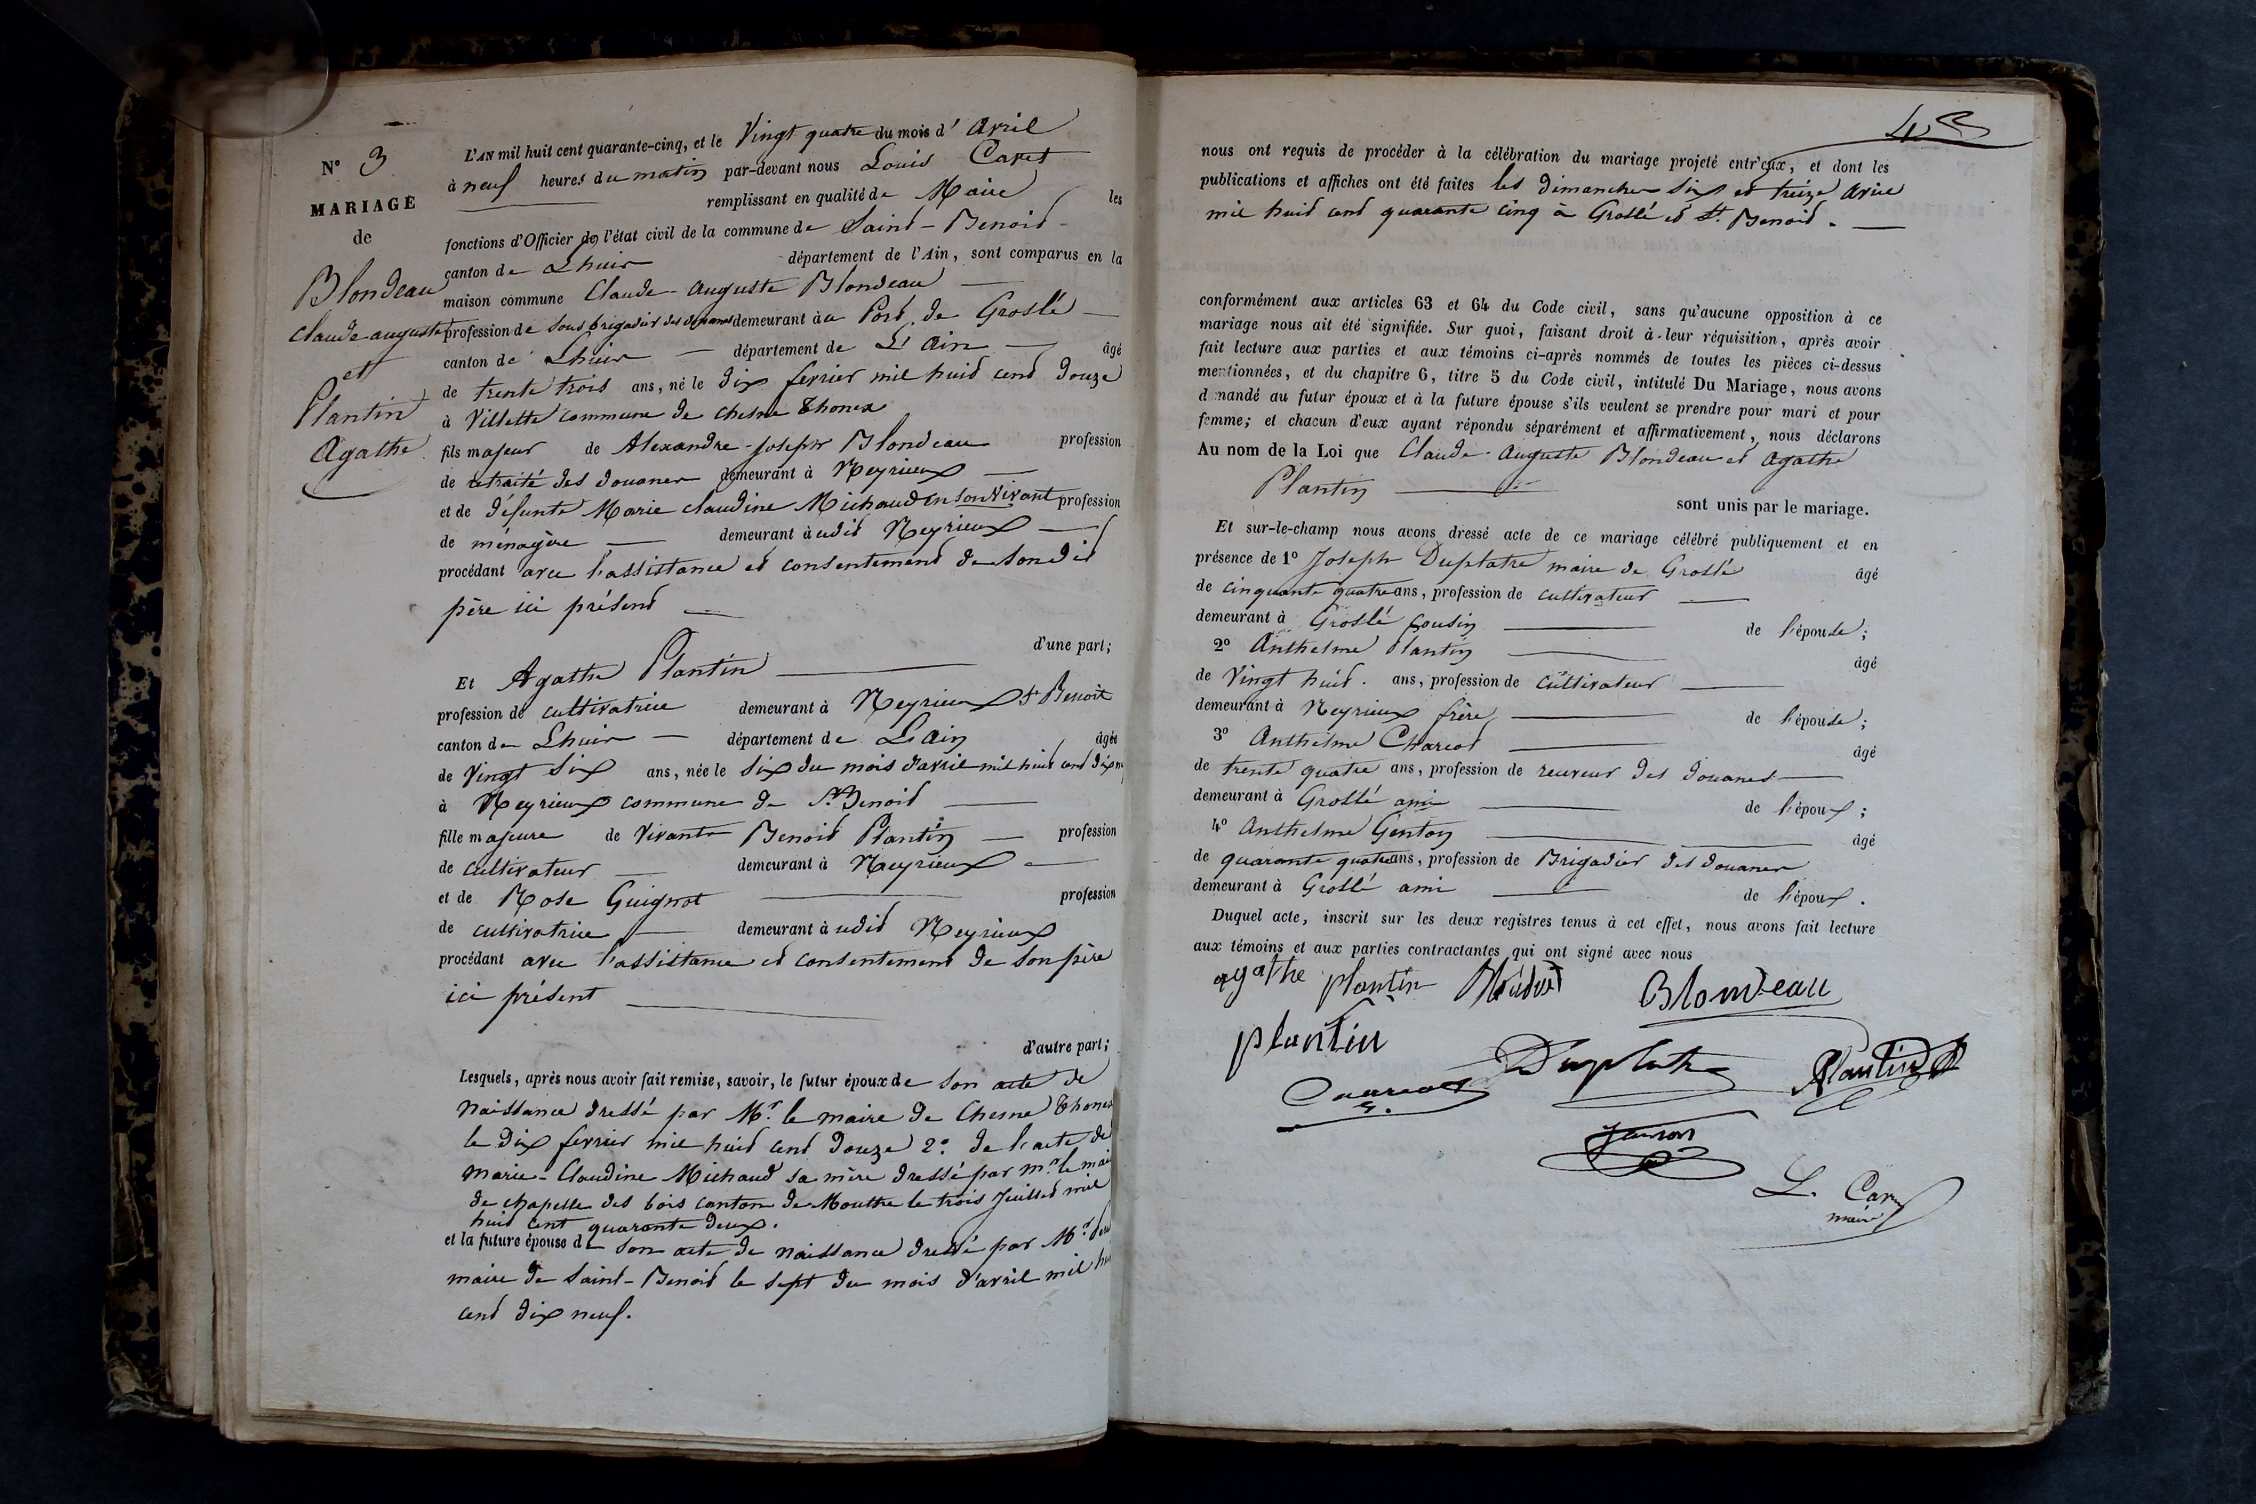 N° 3
MARIAGE
de
Blondeau
Claude auguste
et
Plantin
Agathe
L'AN mil huit cent quarante-cinq, et le Vingt quatre du mois d' avril
à neuf heures du matin par-devant nous Louis Caret
remplissant en qualité de Maire les
fonctions d'Officier de l'état civil de la commune de Saint-Benoid
canton de Lhuis département de l'Ain, sont comparus en la
maison commune Claude-auguste Blondeau
profession de Sous brigadier des douanes demeurant à u Port de Groslé
canton de Lhuis département de L'Ain âgé
de trente trois ans, né le dix fevrier mil huid cend douze
à Villette commune de chesne Thonex
fils majeur de Alexandre-Joseph Blondeau profession
de retraité des douanes demeurant à Neyrieux
et de défunte Marie claudine Michaud en son vivant profession
de ménagère demeurant à udid Neyrieux
procédant avec l'assistance et consentement de Son did
père ici présend
d'une part;
Et Agathe Plantin
profession de cultivatrice demeurant à Neyrieux St Benoit
canton de Lhuis département de L'ain âgée
de Vingt Six ans, née le Six du mois d'avril mil huid cend dix n
à Neyrieux commune de St Benoid
fille majeure de Vivants Benoid Plantin profession
de cultivateur demeurant à Neyrieux
et de Rose Guignot profession
de cultivatrice demeurant à udid Neyrieux
procédant avec l'assistance et consentement de Son père
ici présent
d'autre part;
Lesquels, après nous avoir fait remise, savoir, le futur époux de Son acte de
naissance dressé par Mr. le maire de Chesne Thonex
le dix fevrier mil huid cend douze 2°. de l'acte de
Marie-Claudine Michaud sa mère dressé par mr. le mai
de chapelle des bois canton de Mouthe le trois Juillet mil
huid cent quarante deux.
et la future épouse de son acte de naissance dressé par Mr.
maire de Saint-Benoid le Sept du mois d'avril mil hu
cend dix neuf.
nous ont requis de procéder à la célébration du mariage projeté entr'eux, et dont les
publications et affiches ont été faites les dimanches Six et treize avril
mil huid cend quarante cinq à Groslé et St. Benoid.
conformément aux articles 63 et 64 du Code civil, sans qu'aucune opposition à ce
mariage nous ait été signifiée. Sur quoi, faisant droit à leur réquisition, après avoir
fait lecture aux parties et aux témoins ci-après nommés de toutes les pièces ci-dessus
mentionnées, et du chapitre 6, titre 5 du Code civil, intitulé Du Mariage, nous avons
d mandé au futur époux et à la future épouse s'ils veulent se prendre pour mari et pour
femme; et chacun d'eux ayant répondu séparément et affirmativement, nous déclarons
Au nom de la Loi que Claude-Auguste Blondeau et Agathe
Plantin
sont unis par le mariage.
Et sur-le-champ nous avons dressé acte de ce mariage célébré publiquement et en
présence de 1° Joseph Duplatre maire de Groslé âgé
de cinquante quatre ans, profession de cultivateur
demeurant à Groslé Cousin de l'épouse;
2° Anthelme Plantin âgé
de Vingt huid. ans, profession de cultivateur
demeurant à Neyrieux frère de l'épouse;
3° Anthelme Charcot âgé
de trente quatre ans, profession de receveur des douanes
demeurant à Groslé ami de l'époux;
4° Anthelme Genton âgé
de quarante quatre ans, profession de Brigadier des douanes
demeurant à Groslé ami de l'époux.
Duquel acte, inscrit sur les deux registres tenus à cet effet, nous avons fait lecture
aux témoins et aux parties contractantes qui ont signé avec nous
agathe plantin Blondeau
plantin
Duplatre Plantin
Charcot
L. Caret
maire